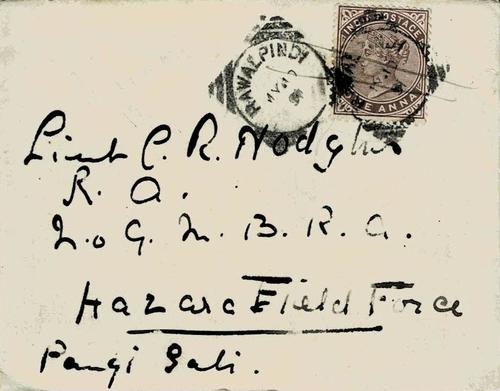 RAWALPINDI
INDIA POSTAGE
ONE ANNA
Lieut C. R.
R. A.
No 9 M. B. R. A.
Hazara Field Force
Gali.